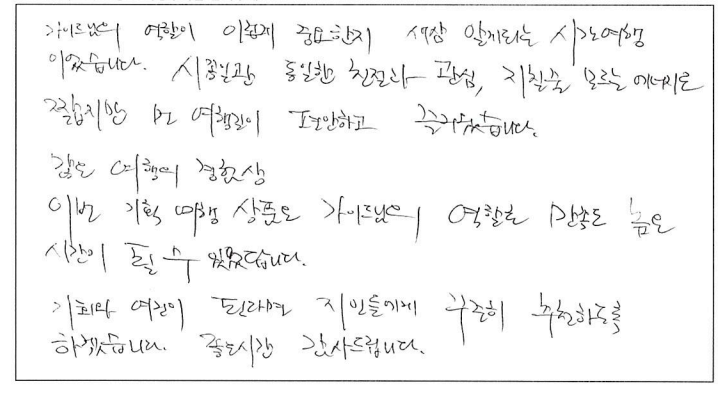 가이드님의 역할이 이렇게 중요한지 새삼 알게되는 시간여행
이었습니다. 시종일관 동일한 친절과 관심, 지칠줄 모르는 에너지로
짧지만 먼 여행길이 편안하고 즐거웠습니다.
많은 여행의 경험상
이번 기획 여행 상품은 가이드님의 역할로 만족도 높은
시간이 될 수 있었답니다.
기회와 여건이 된다면 지인들에게 꾸준히 추천하도록
하겠습니다. 좋은시간 감사드립니다.